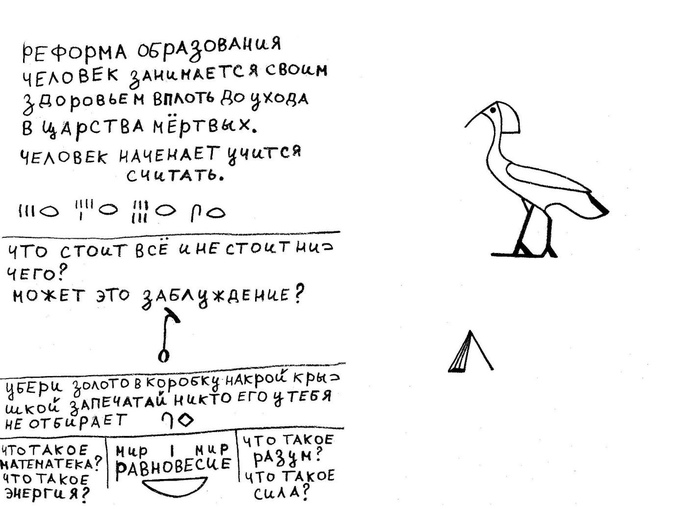 РЕФОРМА ОБРАЗОВАНИЯ
ЧЕЛОВЕК ЗАНИМАЕТСЯ СВОИМ
ЗДОРОВЬЕМ ВПЛОТЬ ДО УХОДА
В ЦАРСТВА МЁРТВЫХ.
ЧЕЛОВЕК НАЧЕНАЕТ УЧИТСЯ
СЧИТАТЬ.
ЧТО СТОИТ ВСЁ И НЕ СТОИТ НИ=
ЧЕГО?
МОЖЕТ ЭТО ЗАБЛУЖДЕНИЕ?
УБЕРИ ЗОЛОТО В КОРОБКУ НАКРОЙ КРЫ=
ШКОЙ ЗАПЕЧАТАЙ НИКТО ЕГО У ТЕБЯ
НЕ ОТБИРАЕТ
ЧТО ТАКОЕ
МАТЕМАТЕКА?
ЧТО ТАКОЕ
ЭНЕРГИЯ?
МИР | МИР
РАВНОВЕСИЕ
ЧТО ТАКОЕ
РАЗУМ?
ЧТО ТАКОЕ
СИЛА?